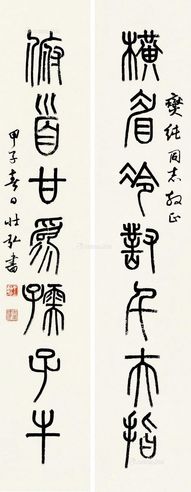 橫眉冷對千夫指
純同志教正
俯首甘爲孺子牛
甲子春日壯弘書